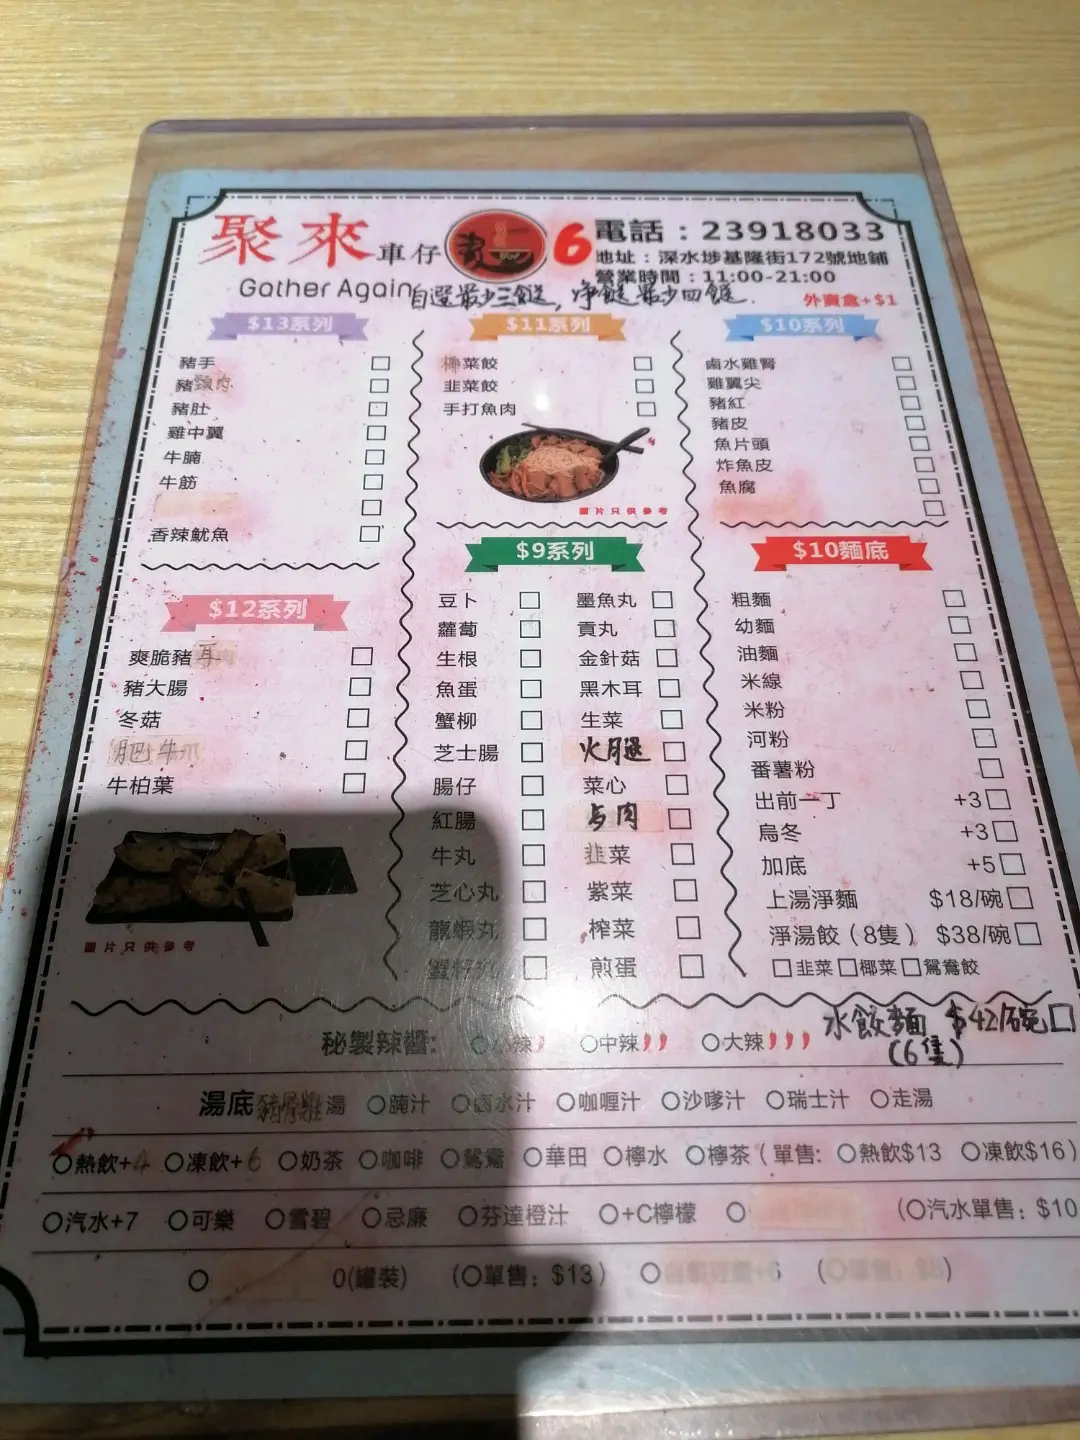 聚來車仔 6
電話：23918033
地址：深水埗基隆街172號地鋪
營業時間：11:00-21:00
Gather Again
自選最少三餸，淨餸最少四餸.
外賣盒+$1
$13系列
豬手
豬頸肉
豬肚
雞中翼
牛腩
牛筋
香辣魷魚
$12系列
爽脆豬耳
豬大腸
冬菇
肥牛
牛柏葉
圖片只供參考
$11系列
椰菜餃
韭菜餃
手打魚肉
圖片只供參考
$10系列
鹵水雞腎
雞翼尖
豬紅
豬皮
魚片頭
炸魚皮
魚腐
$9系列
豆卜
蘿蔔
生根
魚蛋
蟹柳
芝士腸
腸仔
紅腸
牛丸
芝心丸
龍蝦丸
蟹籽丸
墨魚丸
貢丸
金針菇
黑木耳
生菜
火腿
菜心
肉
韭菜
紫菜
榨菜
煎蛋
$10麵底
粗麵
幼麵
油麵
米線
米粉
河粉
番薯粉
出前一丁 +3
烏冬 +3
加底 +5
上湯淨麵 $18/碗
淨湯餃（8隻） $38/碗
韭菜 椰菜 鴛鴦餃
水餃麵 $42/碗
(6隻)
秘製辣醬: 小辣 中辣 大辣
湯底 豬骨雞湯 腩汁 鹵水汁 咖喱汁 沙嗲汁 瑞士汁 走湯
熱飲+4 凍飲+6 奶茶 咖啡 鴛鴦 華田 檸水 檸茶（單售: 熱飲$13 凍飲$16）
汽水+7 可樂 雪碧 忌廉 芬達橙汁 +C檸檬 （汽水單售：$10
0(罐裝) （單售：$13）